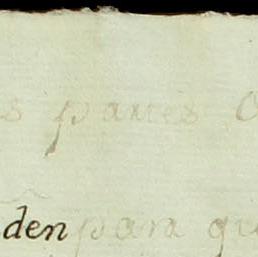 s partes
den para qu